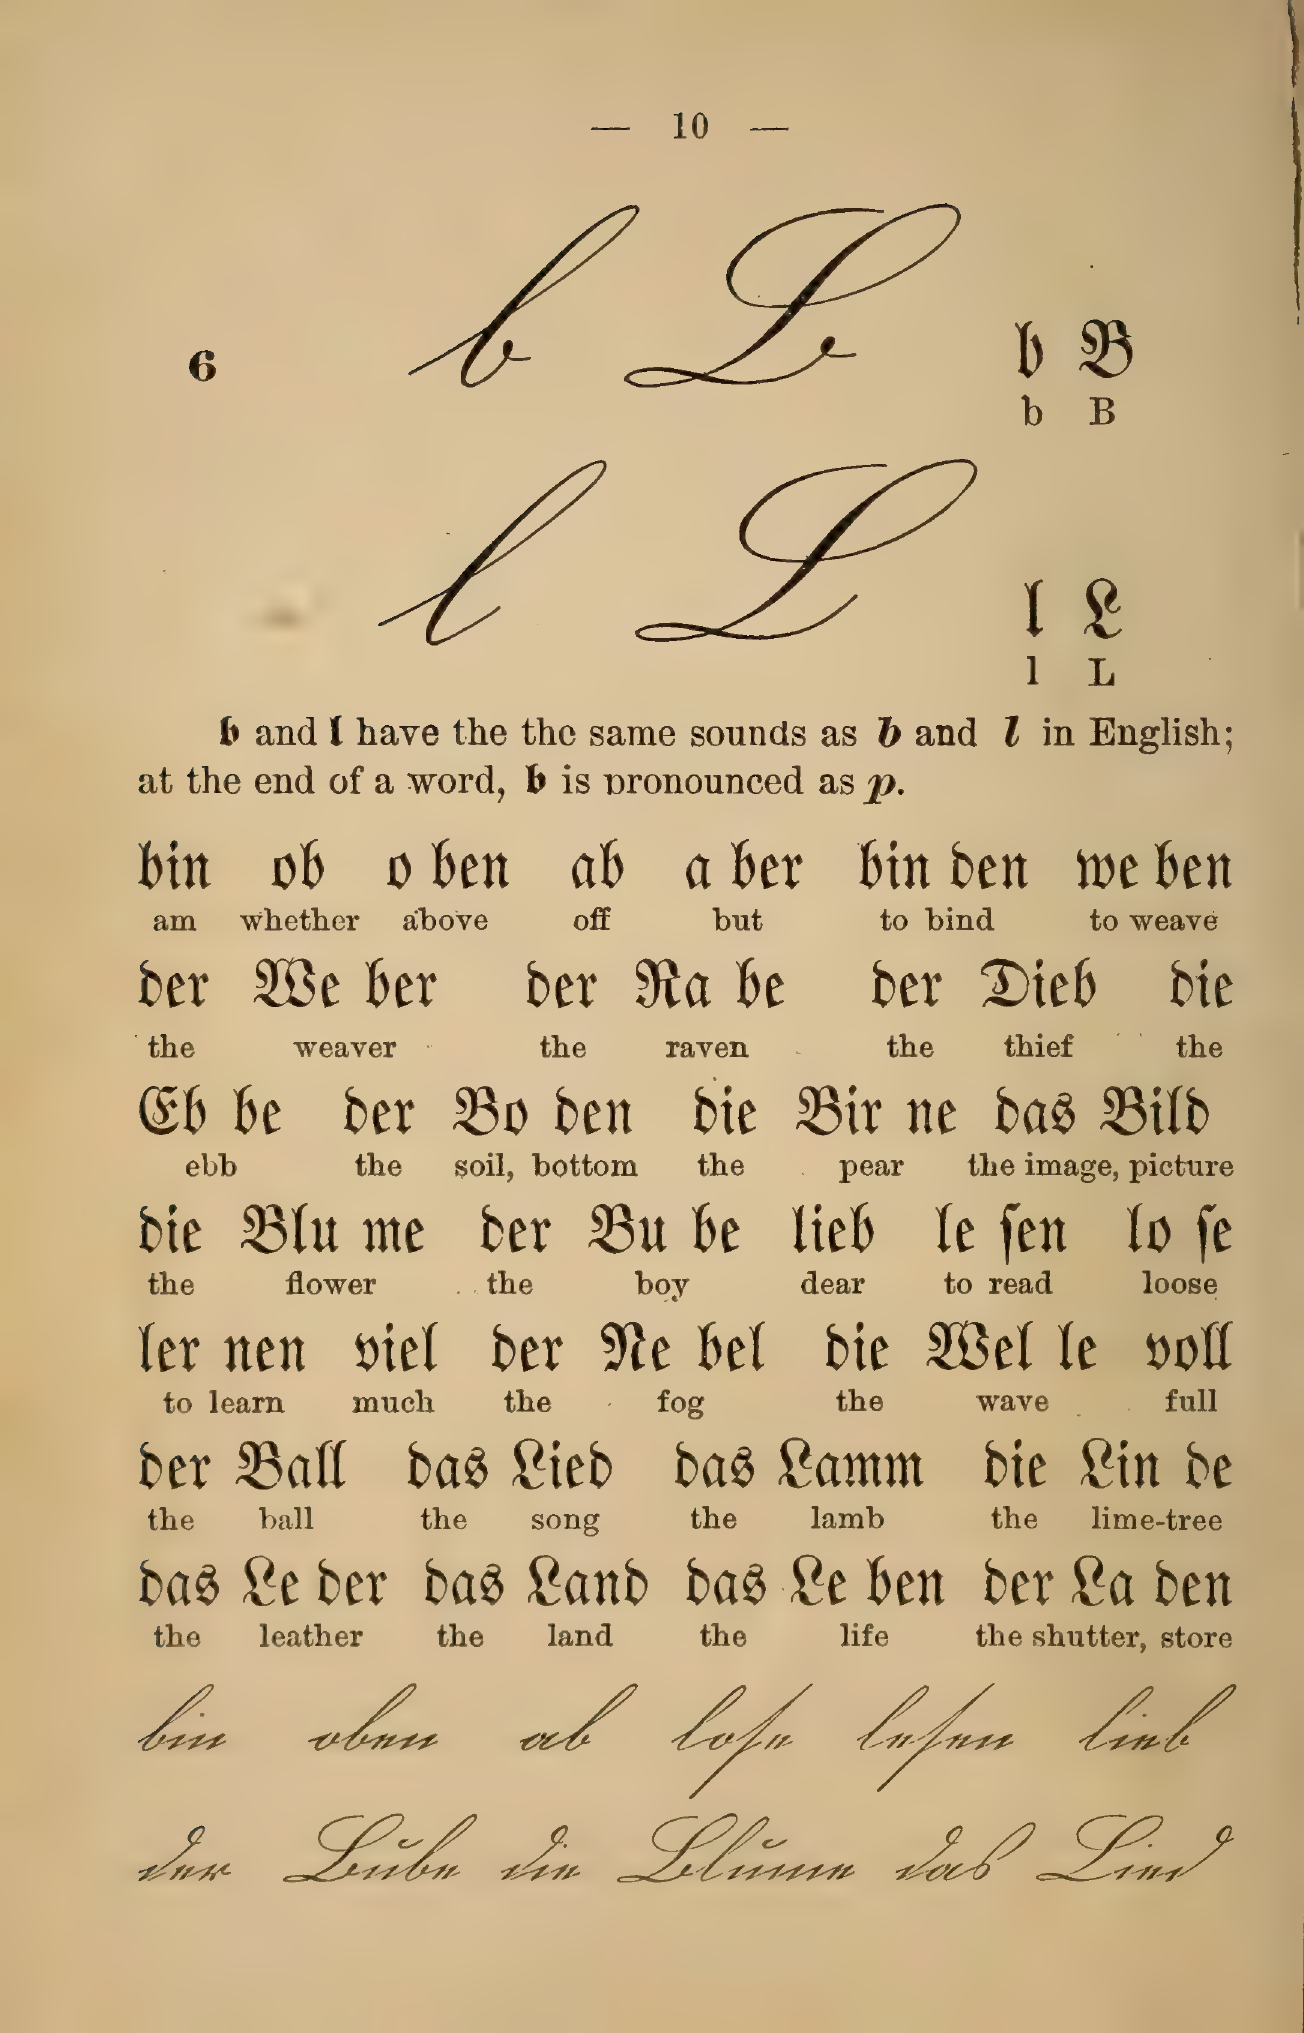 — 10 —
b B
6
b B
b B
l L
l L
l L
b and l have the the same sounds as b and l in English;
at the end of a word, b is pronounced as p.
bin ob o ben ab a ber bin den we ben
am whether above off but to bind to weave
der We ber der Ra be der Dieb die
the weaver the raven the thief the
Eb be der Bo den die Bir ne das Bild
ebb the soil, bottom the pear the image, picture
die Blu me der Bu be lieb le ſen lo ſe
the flower the boy dear to read loose
ler nen viel der Ne bel die Wel le voll
to learn much the fog the wave full
der Ball das Lied das Lamm die Lin de
the ball the song the lamb the lime-tree
das Le der das Land das Le ben der La den
the leather the land the life the shutter, store
bin oben ab loſe leſen lieb
der Bube die Blume das Lied